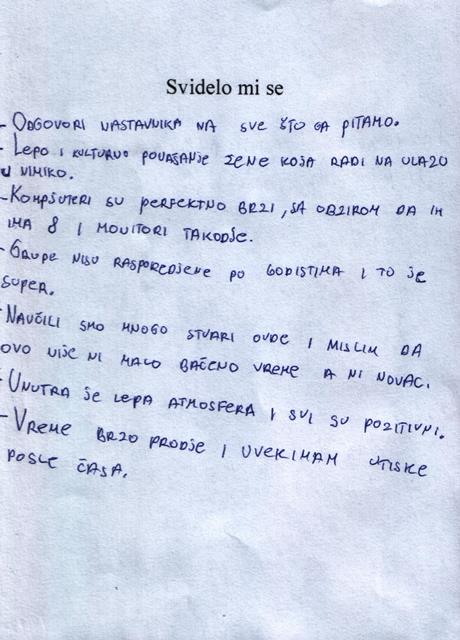 Svidelo mi se
- Odgovori nastavnika na sve što ga pitamo.
- Lepo i kulturno ponašanje žene koja radi na ulazu
u Nimiko.
- Kompjuteri su perfektno brzi, sa obzirom da ih
ima 8 i monitori takodje.
- Grupe nisu rasporedjene po godistima i to je
super.
- Naučili smo mnogo stvari ovde i mislim da
ovo nije ni malo bačeno vreme a ni novac.
- Unutra je lepa atmosfera i svi su pozitivni.
- Vreme brzo prodje i uvek imam utiske
posle časa.